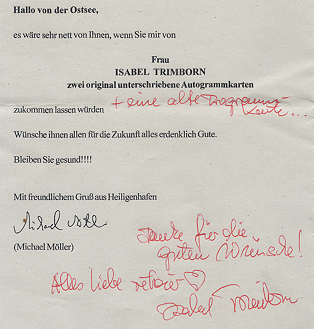 Hallo von der Ostsee,
es wäre sehr nett von Ihnen, wenn Sie mir von
Frau
ISABEL TRIMBORN
zwei original unterschriebene Autogrammkarten
+ eine alte
zukommen lassen würden
Wünsche ihnen allen für die Zukunft alles erdenklich Gute.
Bleiben Sie gesund!!!!
Mit freundlichem Gruß aus Heiligenhafen
(Michael Möller)
Danke für die
guten Wünsche!
Alles Liebe retour
Isabel Trimborn